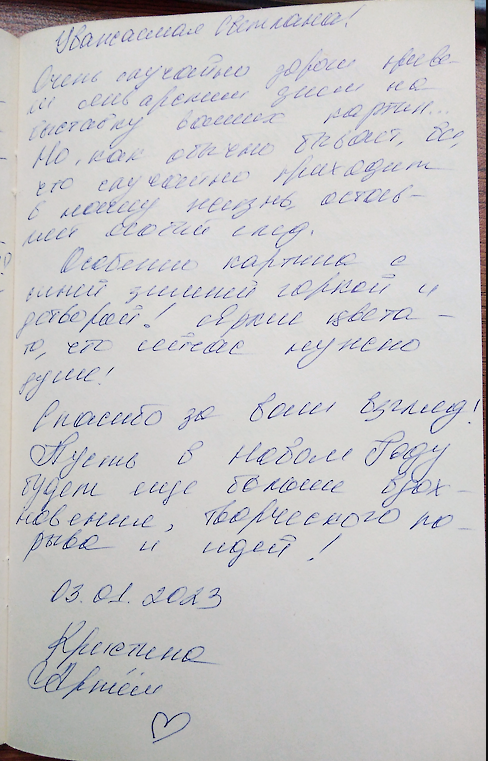 Уважаемая Светлана!
Очень случайно дороги приве-
ли семь арскими днём на
выставку ваших картин...
Но, как обычно бывает, все,
что случайно приходит
в нашу жизнь, остав-
ляет особый след.
Особенно картина с
синей зимней горкой и
детворой! Яркие цвета -
то, что сейчас нужно
душе!
Спасибо за ваш взгляд!
Пусть в Новом Году
будет еще больше вдох-
новения, творческого по-
рыва и идей!
03.01.2023
Кристина
Артём